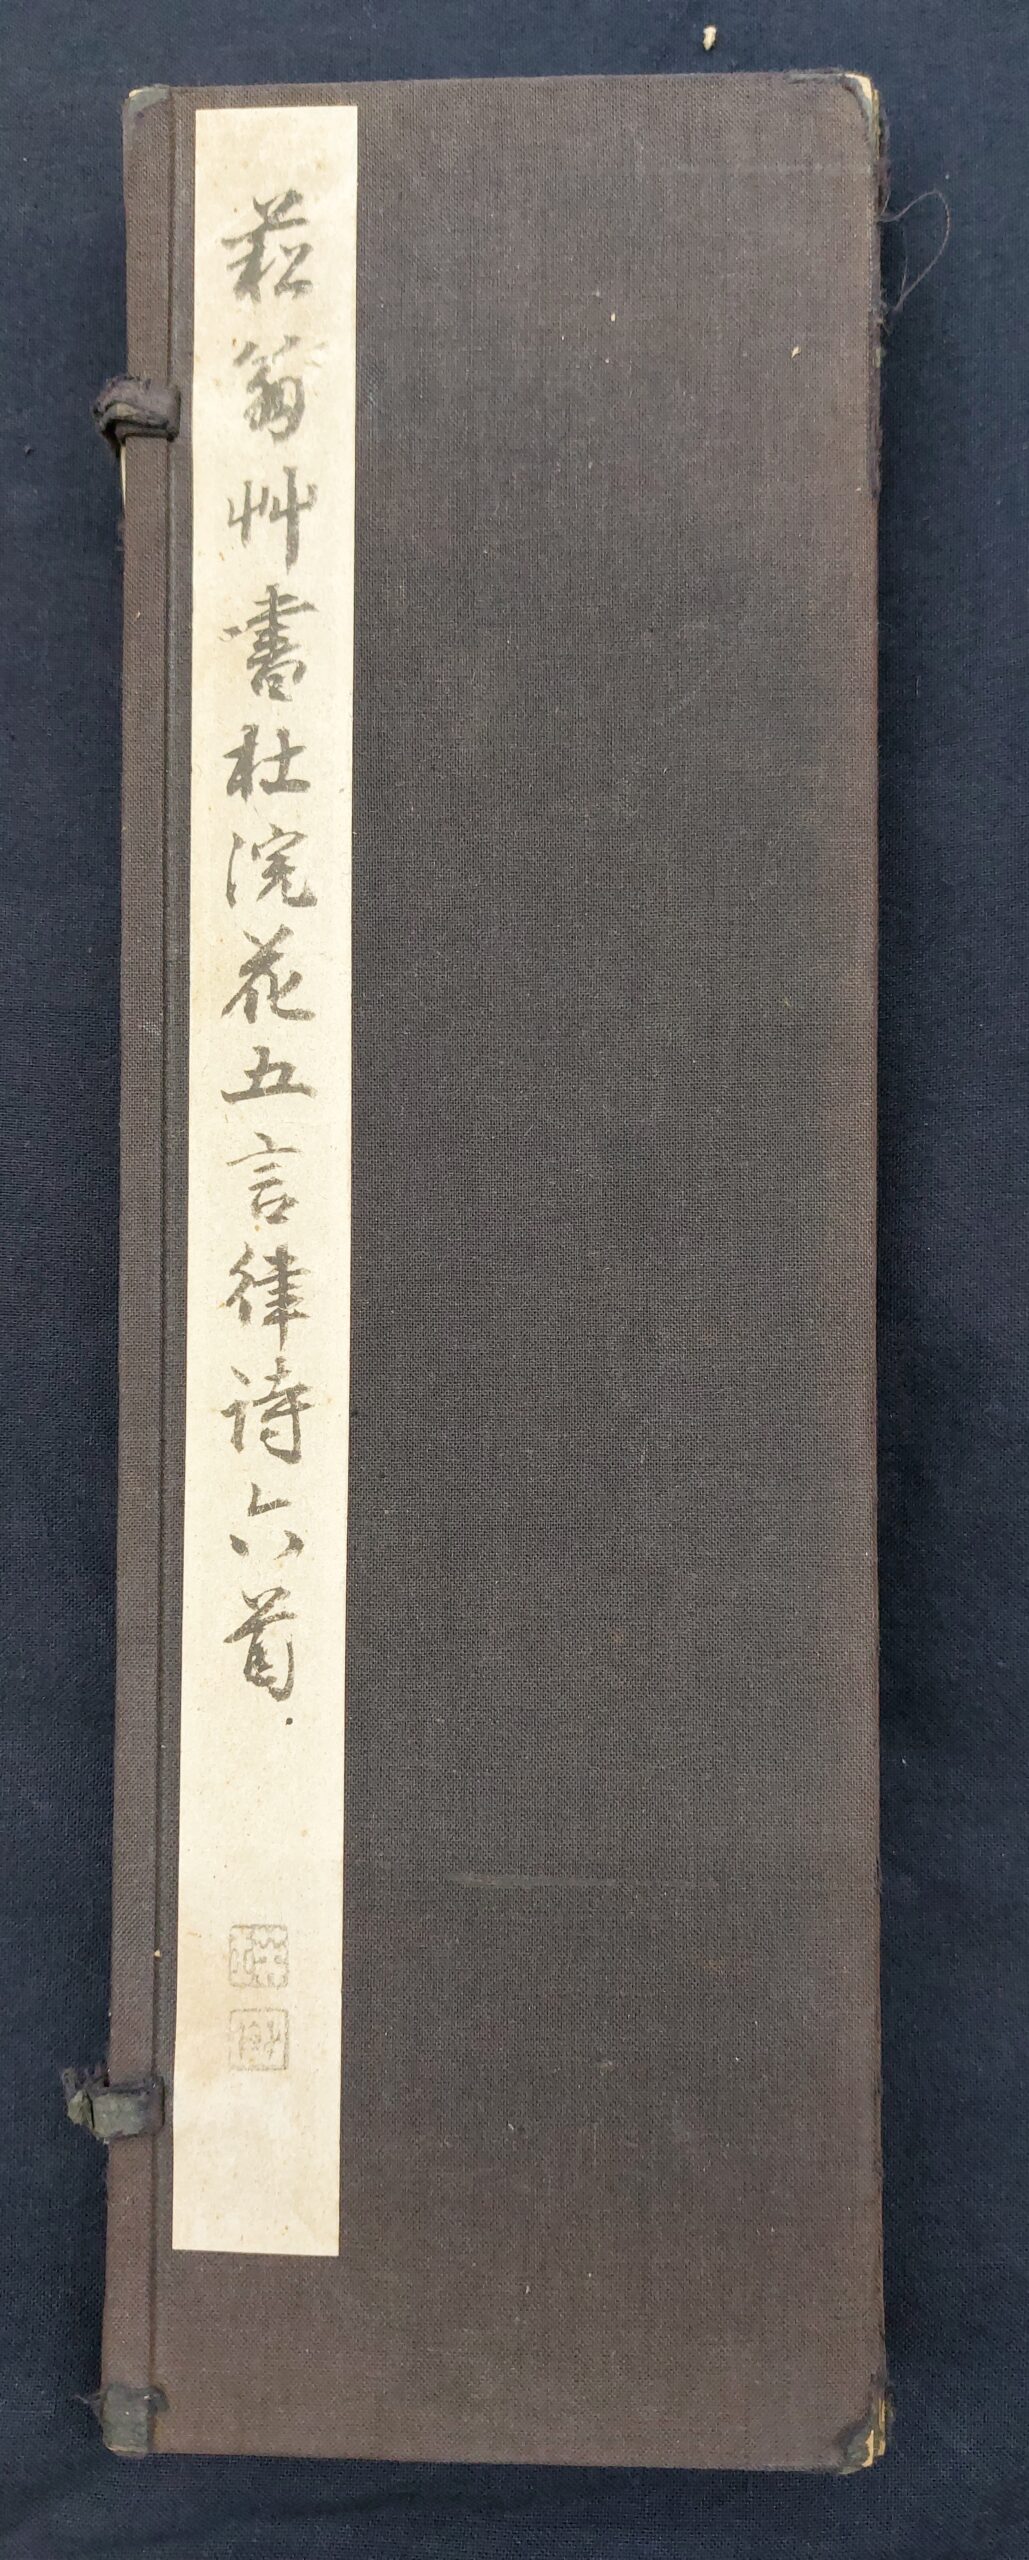 菘翁艸書杜浣花五言律詩六首